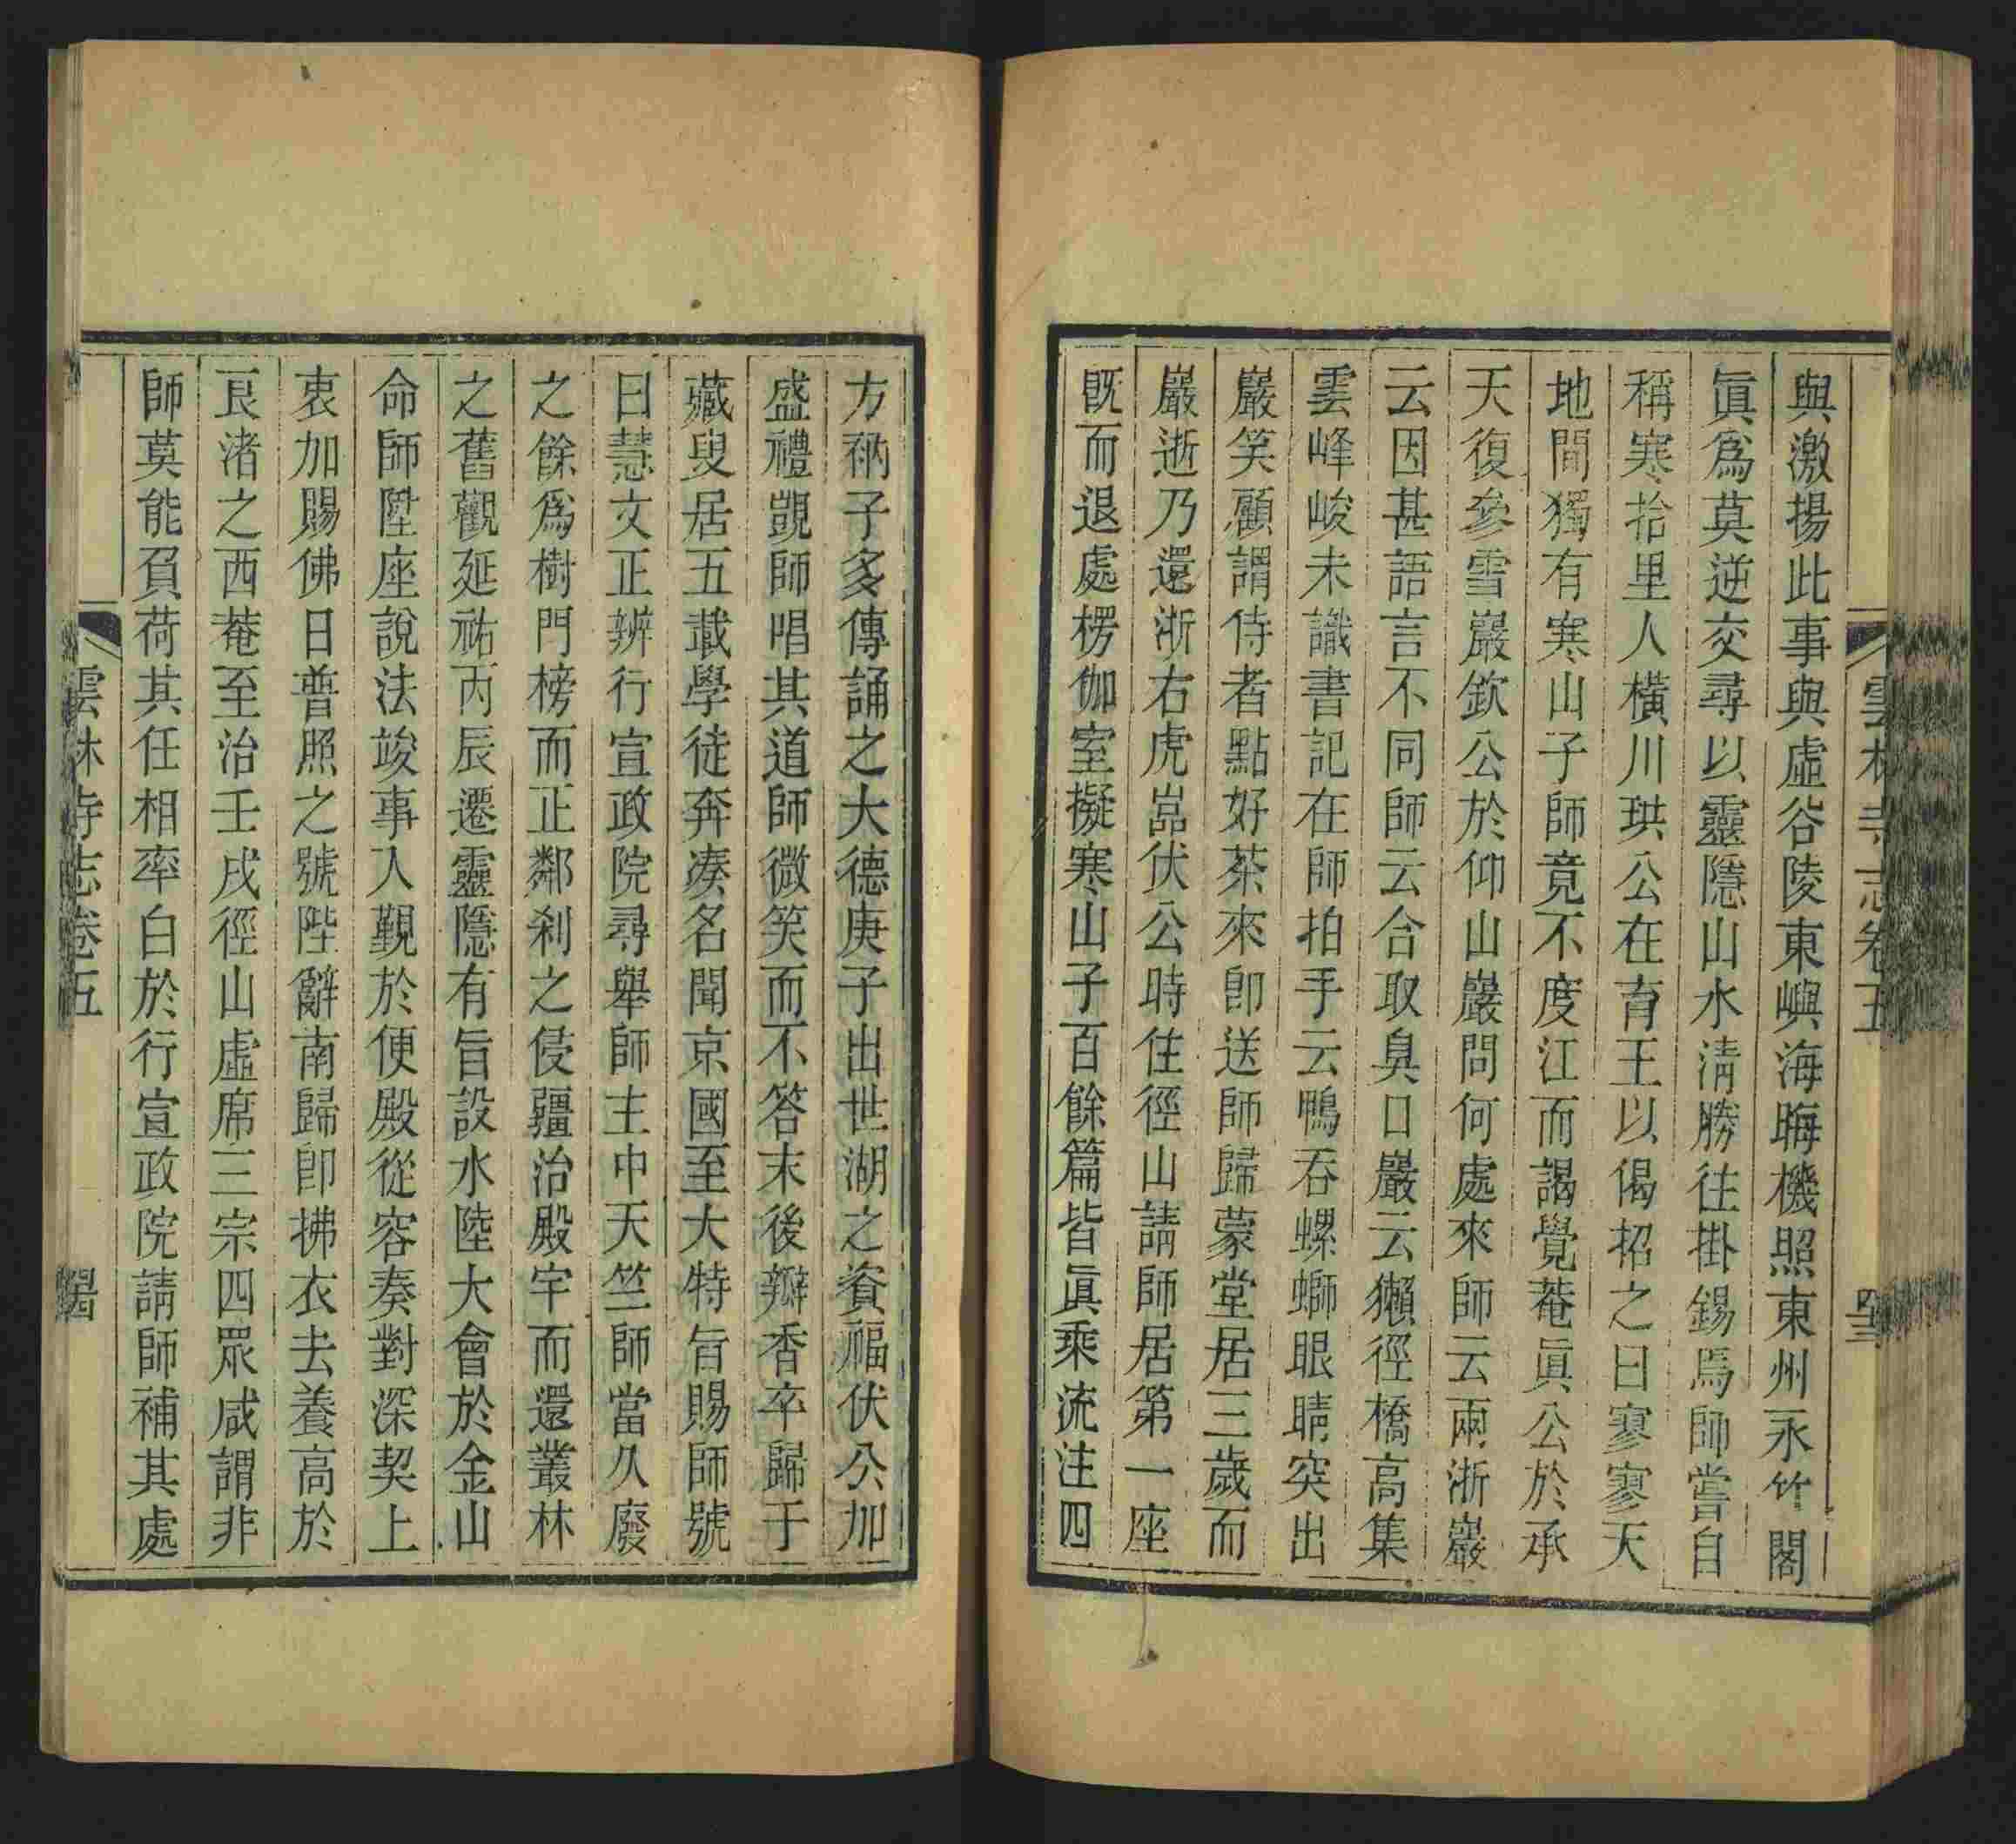 雲林寺志卷五
與激揚此事與虛谷陵東嶼海晦機照東州永竹閣
眞爲莫逆交尋以靈隱山水淸勝往掛錫焉師嘗自
稱寒拾里人橫川珙公在育王以偈招之曰寥寥天
地間獨有寒山子師竟不度江而謁覺菴眞公於承
天復參雪巖欽公於仰山巖問何處來師云兩浙巖
云因甚語言不同師云合取臭口巖云獺徑橋高集
雲峰峻未識書記在師拍手云鴨呑螺螄眼睛突出
巖笑顧謂侍者點好茶來卽送師歸蒙堂居三歲而
巖逝乃還浙右虎嵓伏公時住徑山請師居第一座
旣而退處楞伽室擬寒山子百餘篇皆眞乘流注四
方衲子多傳誦之大德庚子出世湖之資福伏公加
盛禮覬師唱其道師微笑而不答末後瓣香卒歸于
藏叟居五載學徒奔湊名聞京國至大特旨賜師號
曰慧文正辨行宣政院尋舉師主中天竺師當久廢
之餘爲樹門榜而正鄰刹之侵疆治殿宇而還叢林
之舊觀延祐丙辰遷靈隱有旨設水陸大會於金山
命師陞座說法竣事入覲於便殿從容奏對深契上
衷加賜佛日普照之號陛辭南歸卽拂衣去養高於
良渚之西菴至治壬戌徑山虛席三宗四眾咸謂非
師莫能負荷其任相率白於行宣政院請師補其處
雲林寺志卷五